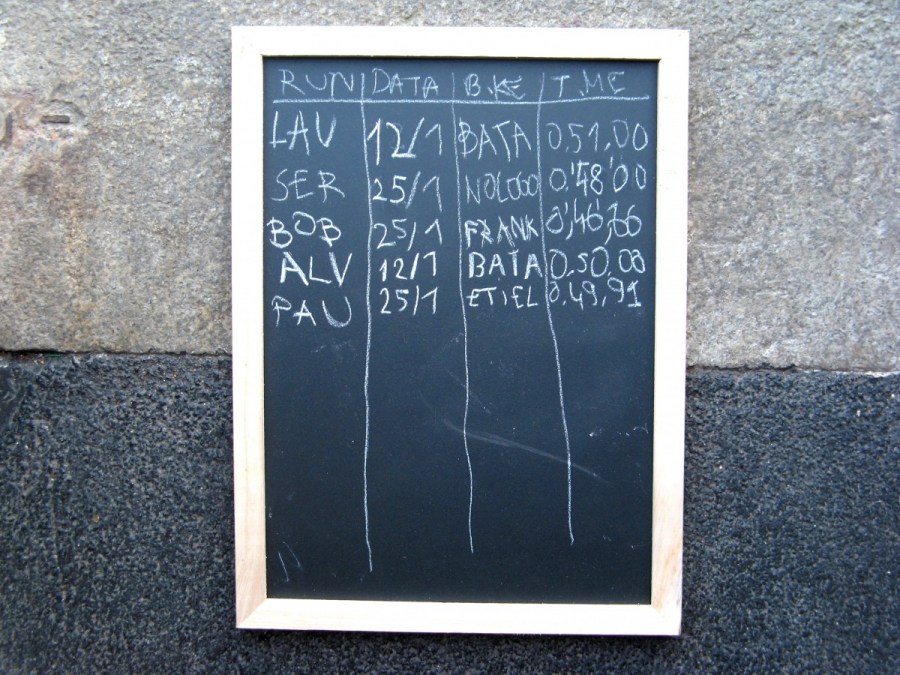 RUN DATA BIKE TIME
LAU 12/1 BATA 0,51,00
SER 25/1 NOLOGO 0,'48'00
BOB 25/1 FRANK 0',46,'66
ALV 12/1 BATA 0,50,03
PAU 25/1 ETIEL 0,49,91